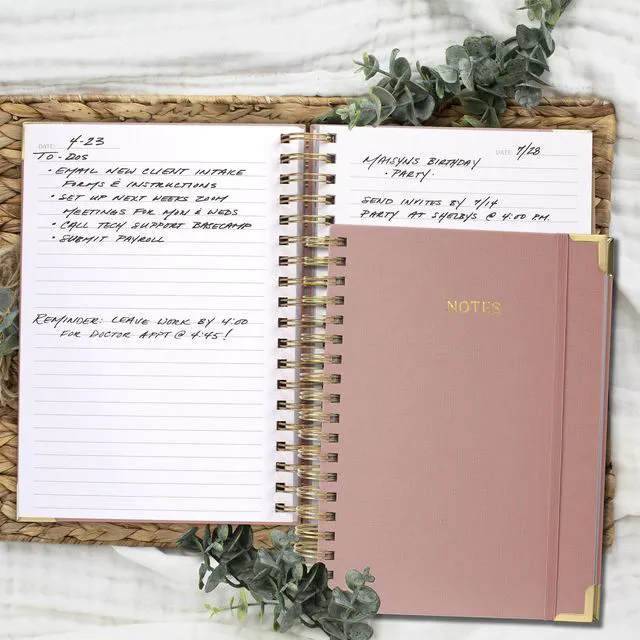 DATE: 4-23
TO-DOS
• EMAIL NEW CLIENT INTAKE
FORMS & INSTRUCTIONS
• SET UP NEXT WEEKS ZOOM
MEETINGS FOR MON & WEDS
• CALL TECH SUPPORT BASECAMP
• SUBMIT PAYROLL
REMINDER: LEAVE WORK BY 4:00
FOR DOCTOR APPT @ 4:45!
DATE: 7/28
MAISYNS BIRTHDAY
• PARTY.
SEND INVITES BY 7/14
PARTY AT SHELBYS @ 4:00 PM.
NOTES